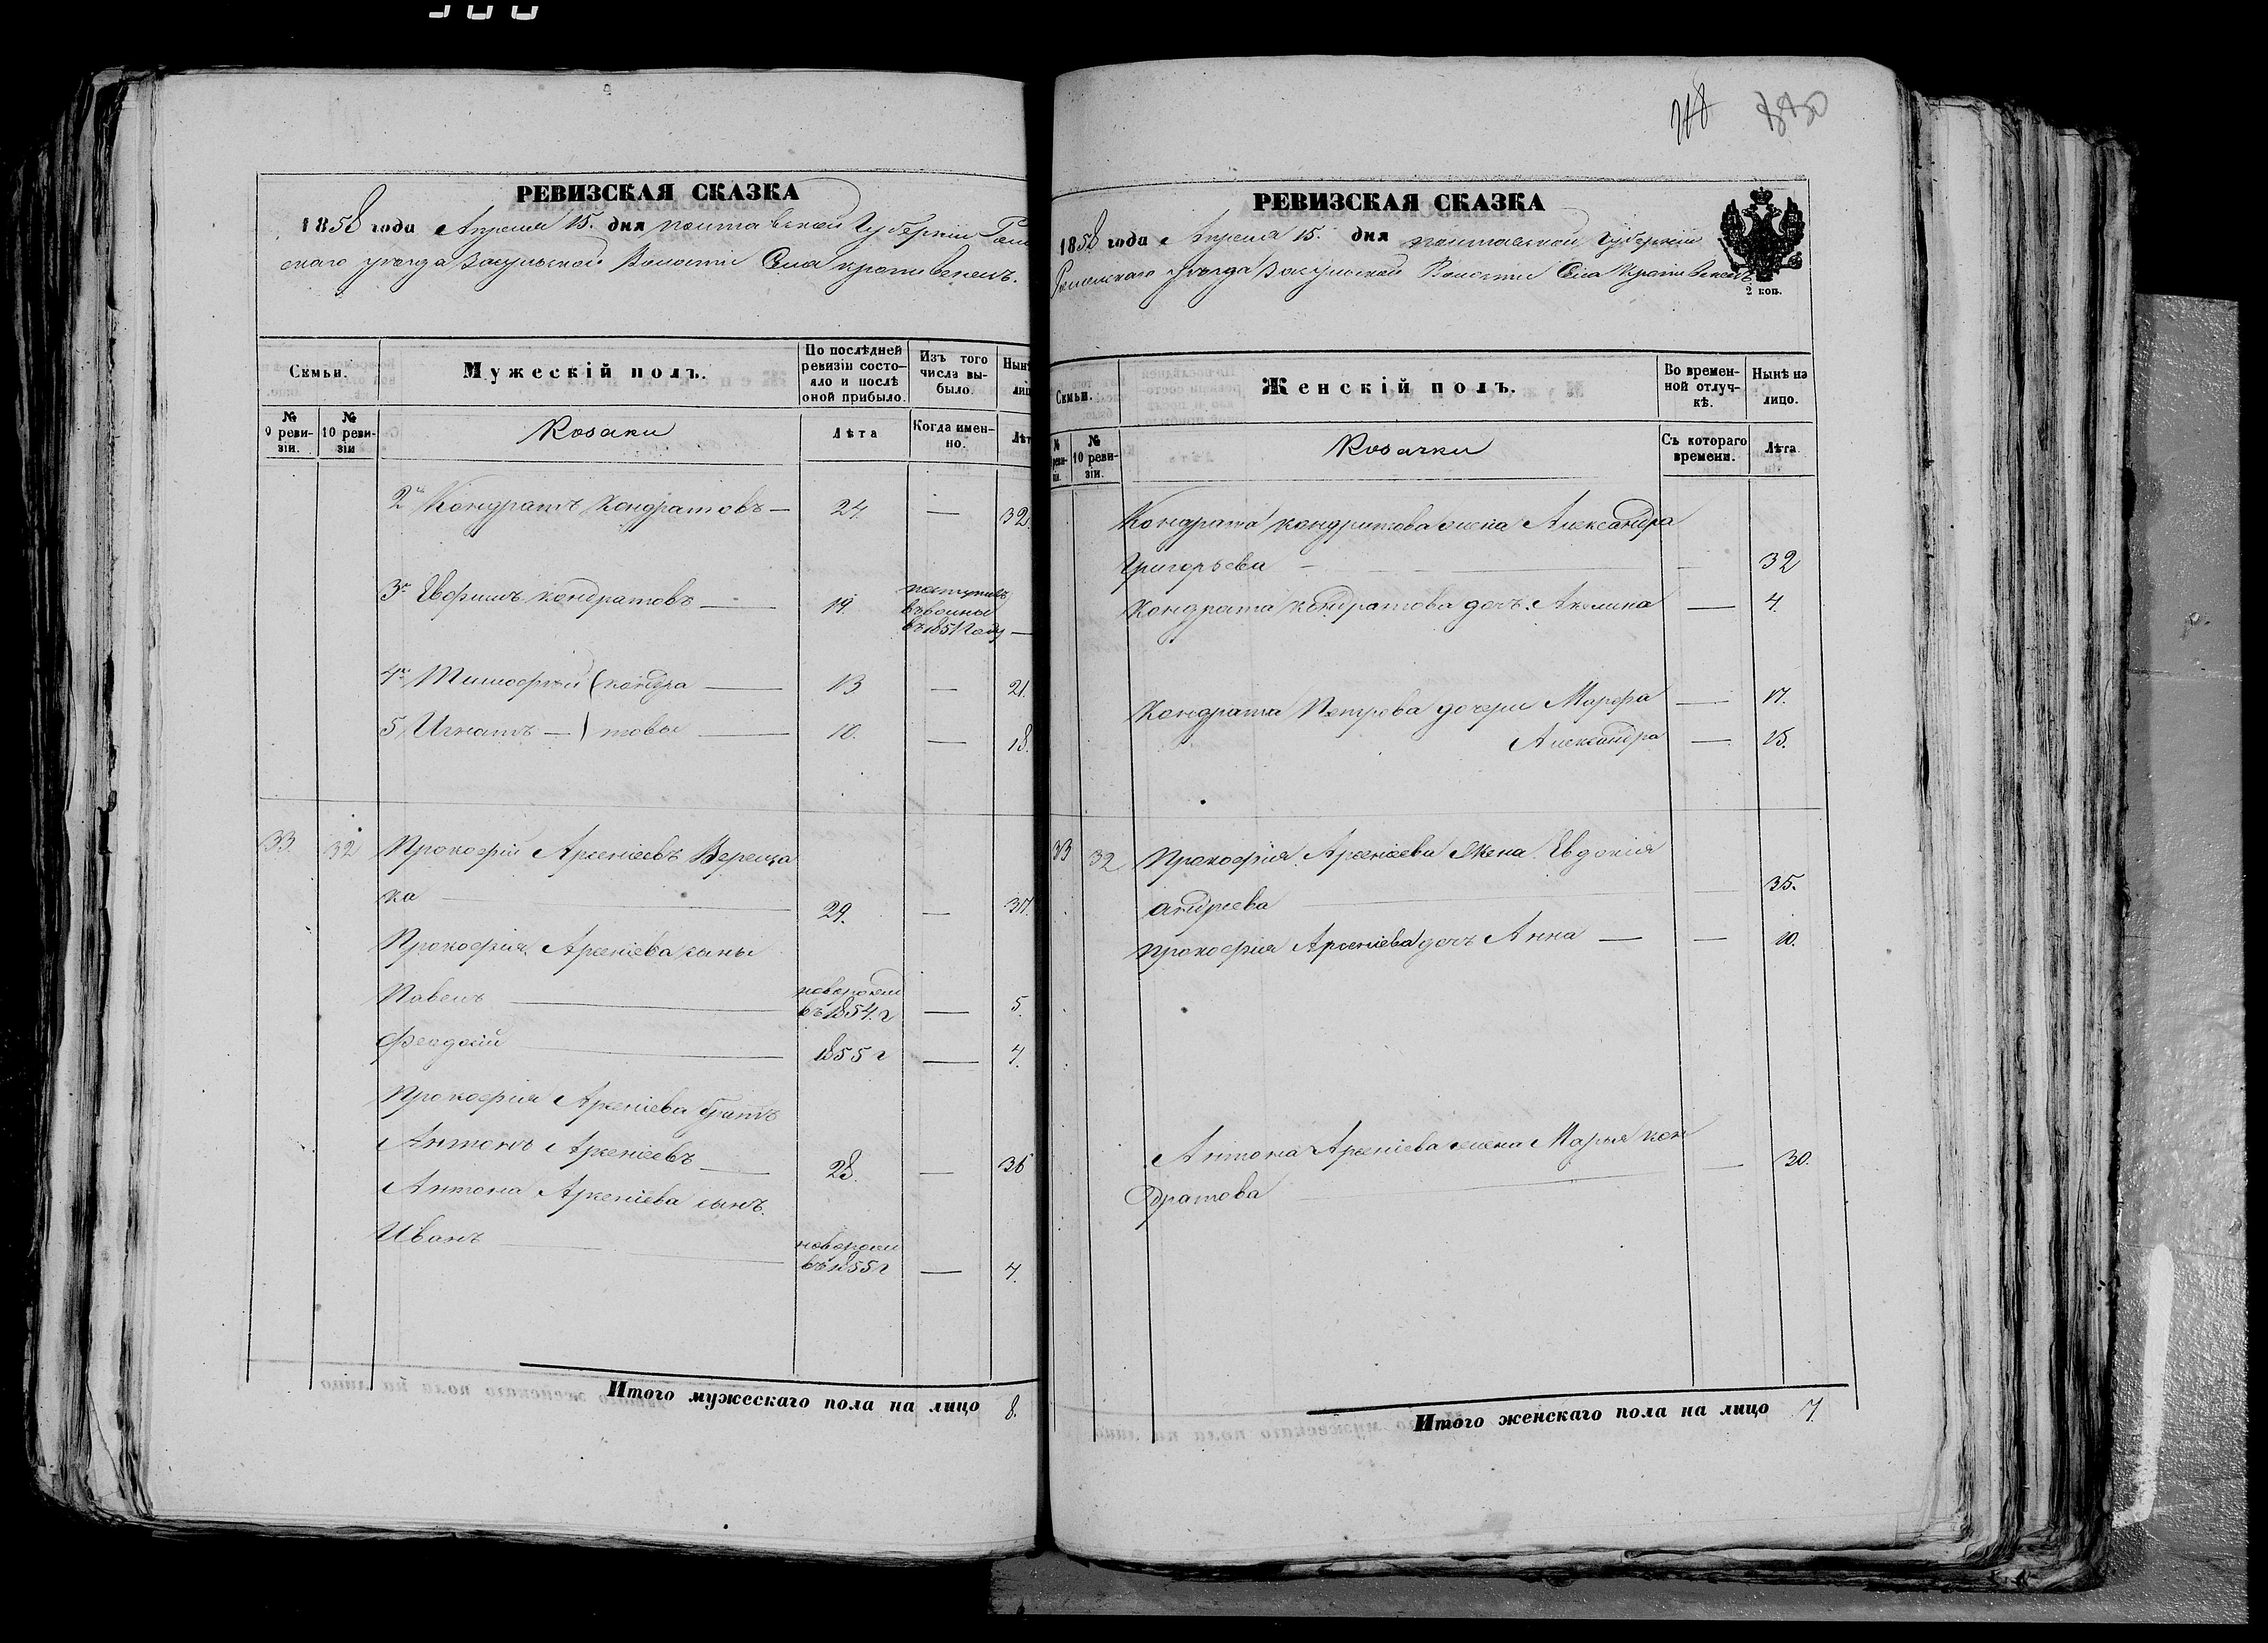 РЕВИЗСКАЯ СКАЗКА
1858 года Апреля 15. дня Полтавской Губерніи Ромен
скаго уѣзда Засульской Волости Села кропивенецъ.
Семьи.
Мужескій полъ.
По послѣдней ревизіи состояло и послѣ оной прибыло.
Изъ того числа выбыло.
Нынѣ
лиц
№ 9 ревизіи.
№ 10 ревизіи
Козаки
Лѣта
Когда именно.
Лѣт
2й Кондратъ Кондратовъ — 24. — 32.
3й Евфимъ кондратовъ — 19. поступилъ
въ военные
въ 1851 году —
4й Тимофѣй ( кондра — 13 — 21.
5, Игнатъ — ) товы — 10. — 18.
33. 32 Прокофій Арсеніевъ Верещa
ка — 29. — 37.
Прокофія Арсеніева сыны
Павелъ — новорожден
въ 1854. г — 5.
Феодосій — 1855 г — 4.
Прокофія Арсеніева братъ
Антонъ Арсеніевъ — 28. — 36
Антона Арсеніева сынъ.
Иванъ — новорожден
въ 1855 г — 4.
Итого мужескаго пола на лицо 8.
218 380
РЕВИЗСКАЯ СКАЗКА
1858 года Апреля 15. дня Полтавской Губерніи
Роменскаго уѣзда Засульской Волости Села Кропивенецъ
2 коп.
Семьи.
Женскій полъ.
Во временной отлучкѣ.
Нынѣ на лицо.
№ реви-
зіи.
№ 10 ревизіи.
Козачки
Съ котораго времени.
Лѣта
Кондрата кондратова жена Александра
Григорьева — — 32
Кондрата кондратова дочь Акилина — 4.
Кондрата Петрова дочери Марфа — 17.
Александра — 15.
33 32 Прокофія Арсеніева Жена Евдокія
андреева — — 35.
Прокофія Арсеніева дочь Анна — — 10.
Антона Арсеніева жена Марья кон
дратова — — 30.
Итого женскаго пола на лицо 7